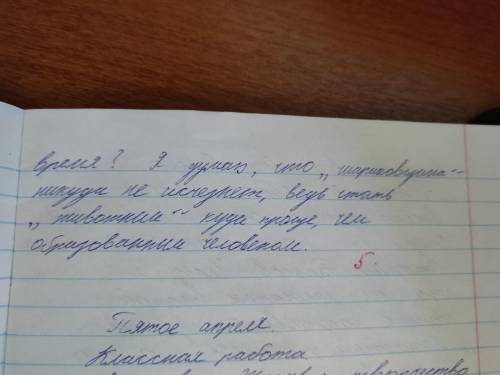 время? Я думаю, что „шариковщина“
никуда не исчезнет, ведь стать
„животным“ куда проще, чем
образованным человеком.
5
Пятое апреля.
Классная работа.